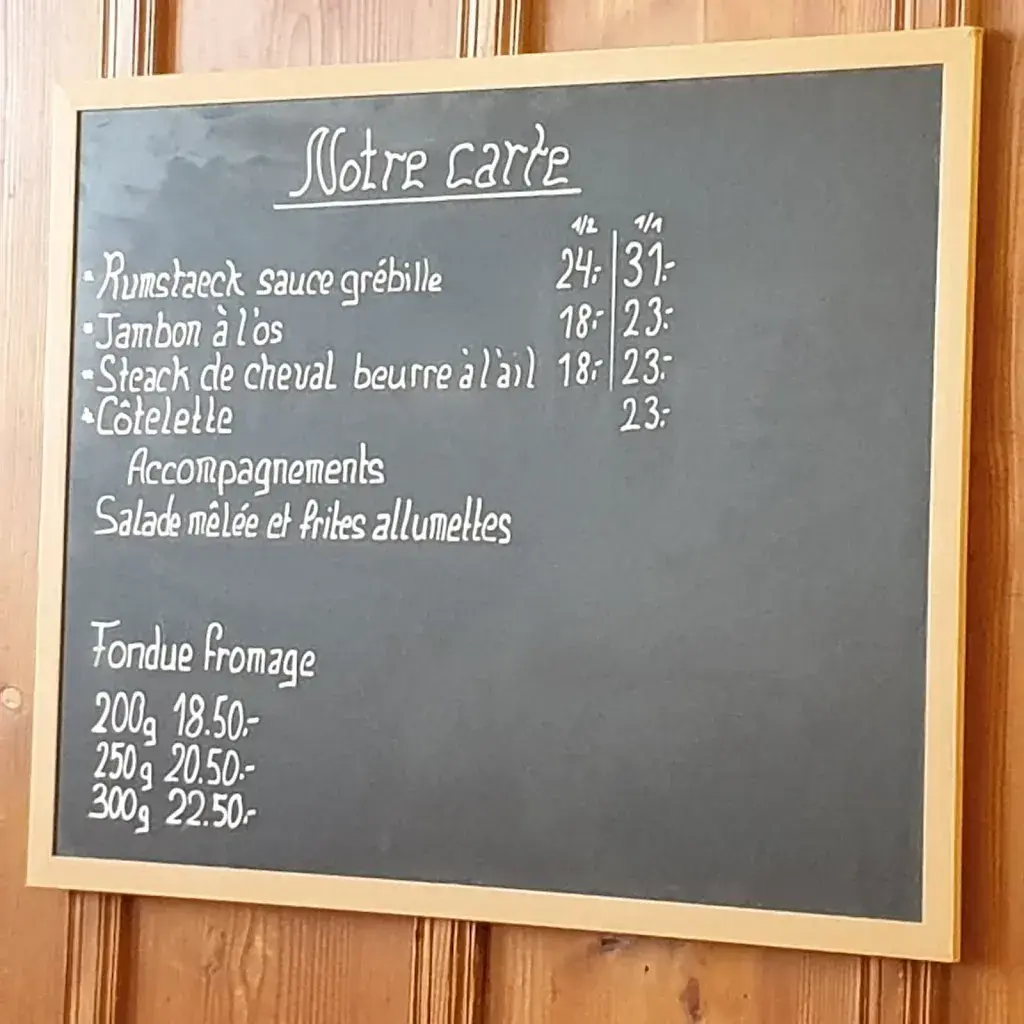 Notre carte
1/2 1/1
- Rumstaeck sauce grébille 24.- 31.-
- Jambon à l'os 18.- 23.-
- Steack de cheval beurre à l'ail 18.- 23.-
- Côtelette 23.-
Accompagnements
Salade mêlée et frites allumettes
Fondue fromage
200g 18.50.-
250g 20.50.-
300g 22.50.-